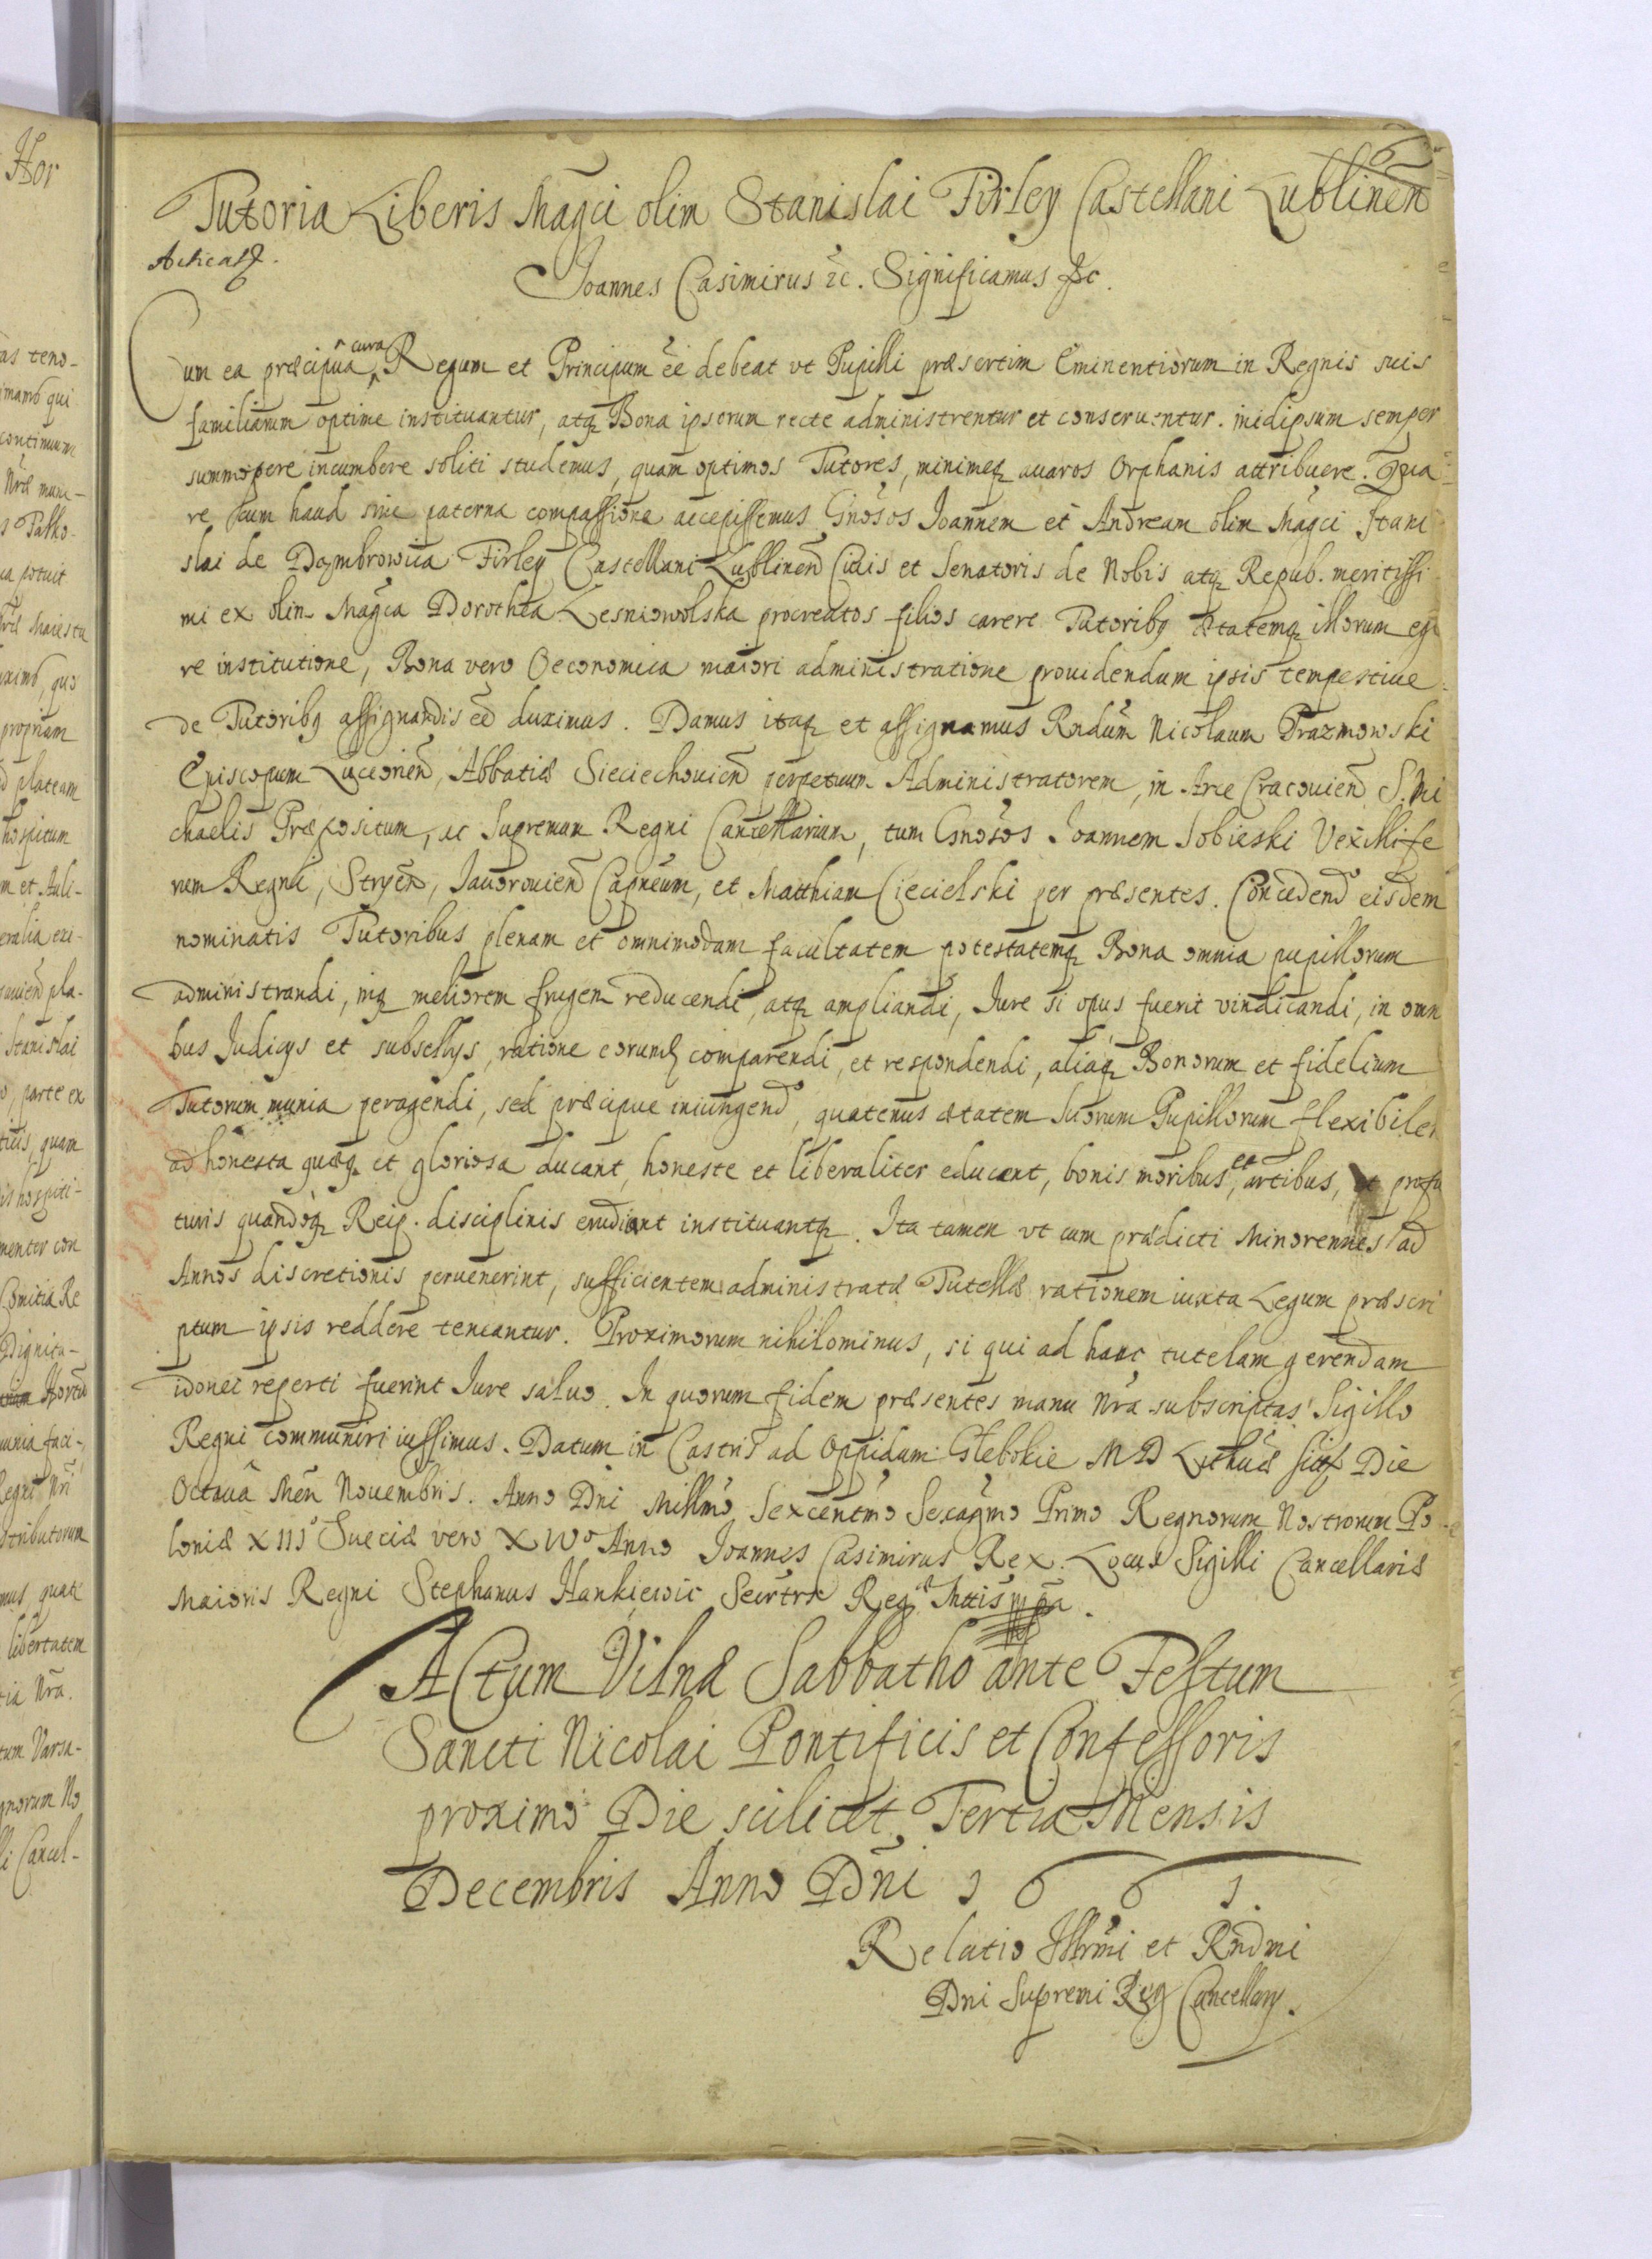 Hor
as teno-
mamb qui
continuum
Nræ mune-
s Patko-
ua potuit
Maiesta
ximo, quo
propriam
plateam
hospitum
m et Auli-
eralia exi-
pla-
Stanislai
o, parte ex
quam
is hospiti-
menter con
Comitia Re
Dignita-
Hortu
unia faci-
Regni Nri
stributorum
mus, quate
libertatem
tia Nra.
tum Varsa-
gnorum No
li Cancel-
6
Tutoria Liberis Magci olim Stanislai Firley Castellani Lublinen
Acticatz.
Joannes Casimirus &c. Significamus &c.
Cum ea præcipua cura Regum et Principum eē debeat vt Pupilli præsertim Eminentiorum in Regnis suis
familiarum optime instituantur, atq Bona ipsorum recte administrentur et conseruentur. inidipsum semper
summopere incumbere soliti studemus, quam optimos Tutores, minimeq auaros Orphanis attribuere. Qua-
re cum haud sine paterna compassione accepissemus Gnosos Joannem et Andream olim Magci Stani
slai de Dąmbrowica Firley Castellani Lublinen Ciuis et Senatoris de Nobis atq Repub. meritissi
mi ex olim Magca Dorothea Lesniowolska procreatos filios carere Tutoribq ætatemq illorum ege
re institutione, Bona vero Oeconomica maiori administratione prouidendum ipsis tempestiue
de Tutoribq assignandis eē duximus. Damus itaq et assignamus Rndum Nicolaum Prazmowski
Episcopum Luceorien, Abbatiæ Sieciechouien perpetuum Administratorem, in Arce Cracouien S. Mi
chaelis Præpositum, ac Supremum Regni Cancellarium, tum Gnosos Joannem Sobieski Vexillife
rum Regni, Stryen, Jauorouien Capneum, et Matthiam Ciecielski per præsentes. Concedend eisdem
nominatis Tutoribus plenam et omnimodam facultatem potestatemq Bona omnia pupillorum
administrandi, inq meliorem frugem reducendi, atq ampliandi, Iure si opus fuerit vindicandi, in omni
bus Judicys et subsellys, ratione eorumq comparendi, et respondendi, aliaq Bonorum et fidelium
Tutorum munia peragendi, sed præcipue iniungend, quatenus ætatem Suorum Pupillorum flexibilem
ad honesta quæq et gloriosa ducant, honeste et liberaliter educant, bonis moribus, et artibus, profu
turis quandoq Reip. disciplinis erudiant instituantq. Ita tamen vt cum prædicti Minorennes ad
Annos discretionis peruenerint, sufficientem administratæ Tutellæ rationem iuxta Legum præscri
ptum ipsis reddere teneantur. Proximorum nihilominus, si qui ad hanc tutelam gerendam
idonei reperti fuerint Iure saluo. In quorum fidem præsentes manu Nra subscriptas Sigillo
Regni communiri iussimus. Datum in Castris ad Oppidum Glebokie M D Lithuæ sitis Die
Octaua Men Nouembris. Anno Dni Millmo Sexcentmo Sexagmo Primo Regnorum Nostrorum Po-
loniæ XIIIo Sueciæ vero XIVo Anno Joannes Casimirus Rex. Locus Sigilli Cancellariæ
Maioris Regni Stephanus Hankiewic Secrtrs Regæ Mttis mpa.
Actum Vilnæ Sabbatho ante Festum
Sancti Nicolai Pontificis et Confessoris
proximo Die scilicet Tertia Mensis
Decembris Anno Dni 1661.
Relatio Illrmi et Rndmi
Dni Supremi Reg Cancellary.